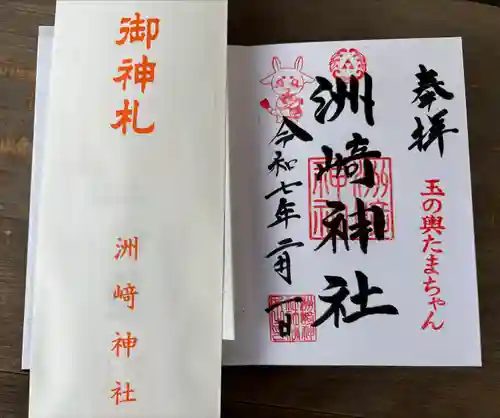 御神札
洲﨑神社
奉拝
玉の輿たまちゃん
洲﨑神社
令和七年二月一日